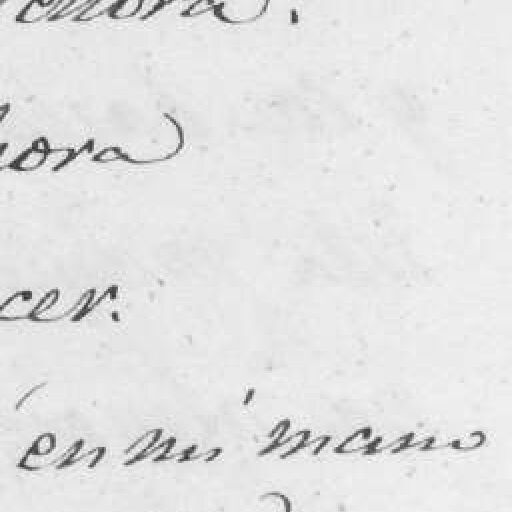 enora.
hora
cer.
en mi mano